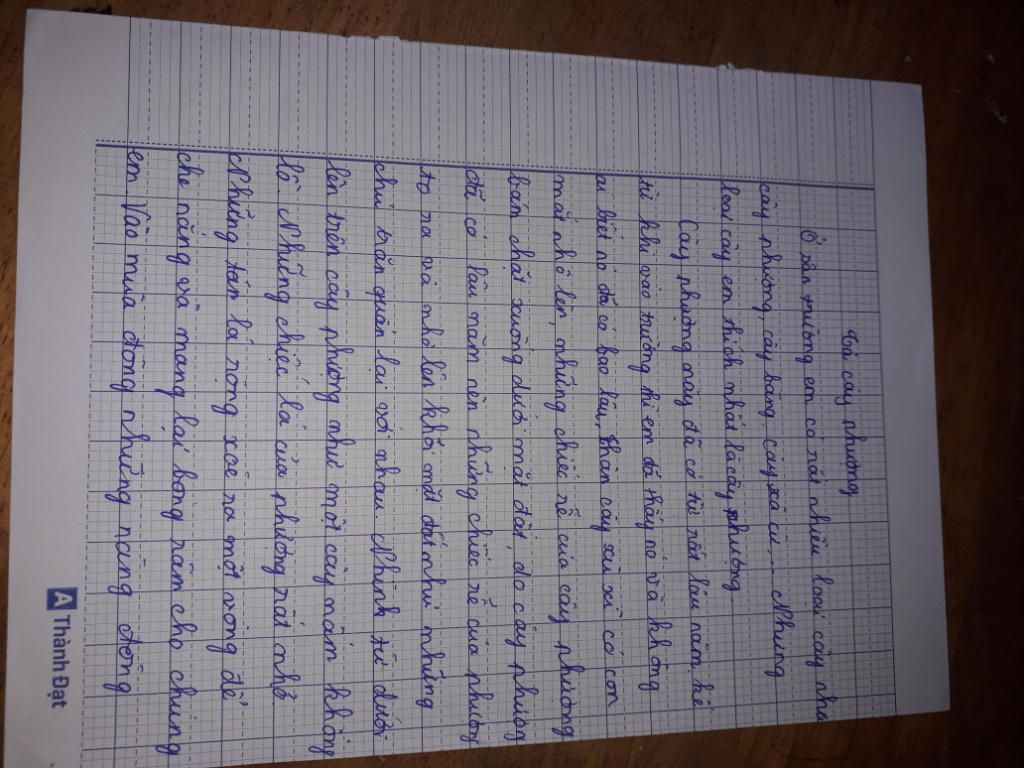 Tả cây phượng
Ở sân trường em có rất nhiều loài cây như
cây phượng, cây bàng, cây xà cừ,... Nhưng
loài cây em thích nhất là cây phượng.
Cây phượng này đã có từ rất lâu năm kể
từ khi vào trường thì em đã thấy nó và không
a biết nó đã có bao lâu, thân cây xù xì có con
mắt nhô lên, những chiếc rễ của cây phượng
bám chặt xuống dưới mặt đất, do cây phượng
đã có lâu năm nên những chiếc rễ của phượng
to ra và nhô lên khỏi mặt đất như những
chú trăn quấn lại với nhau Nhình từ dưới
lên trên cây phượng như một cây nấm khổng
lồ Những chiếc lá của phượng rất nhỏ
Những tán lá rộng xòe ra một vòng để
che nắng và mang lại bóng râm cho chúng
em Vào mùa đông những nàng đông
A Thành Đạt